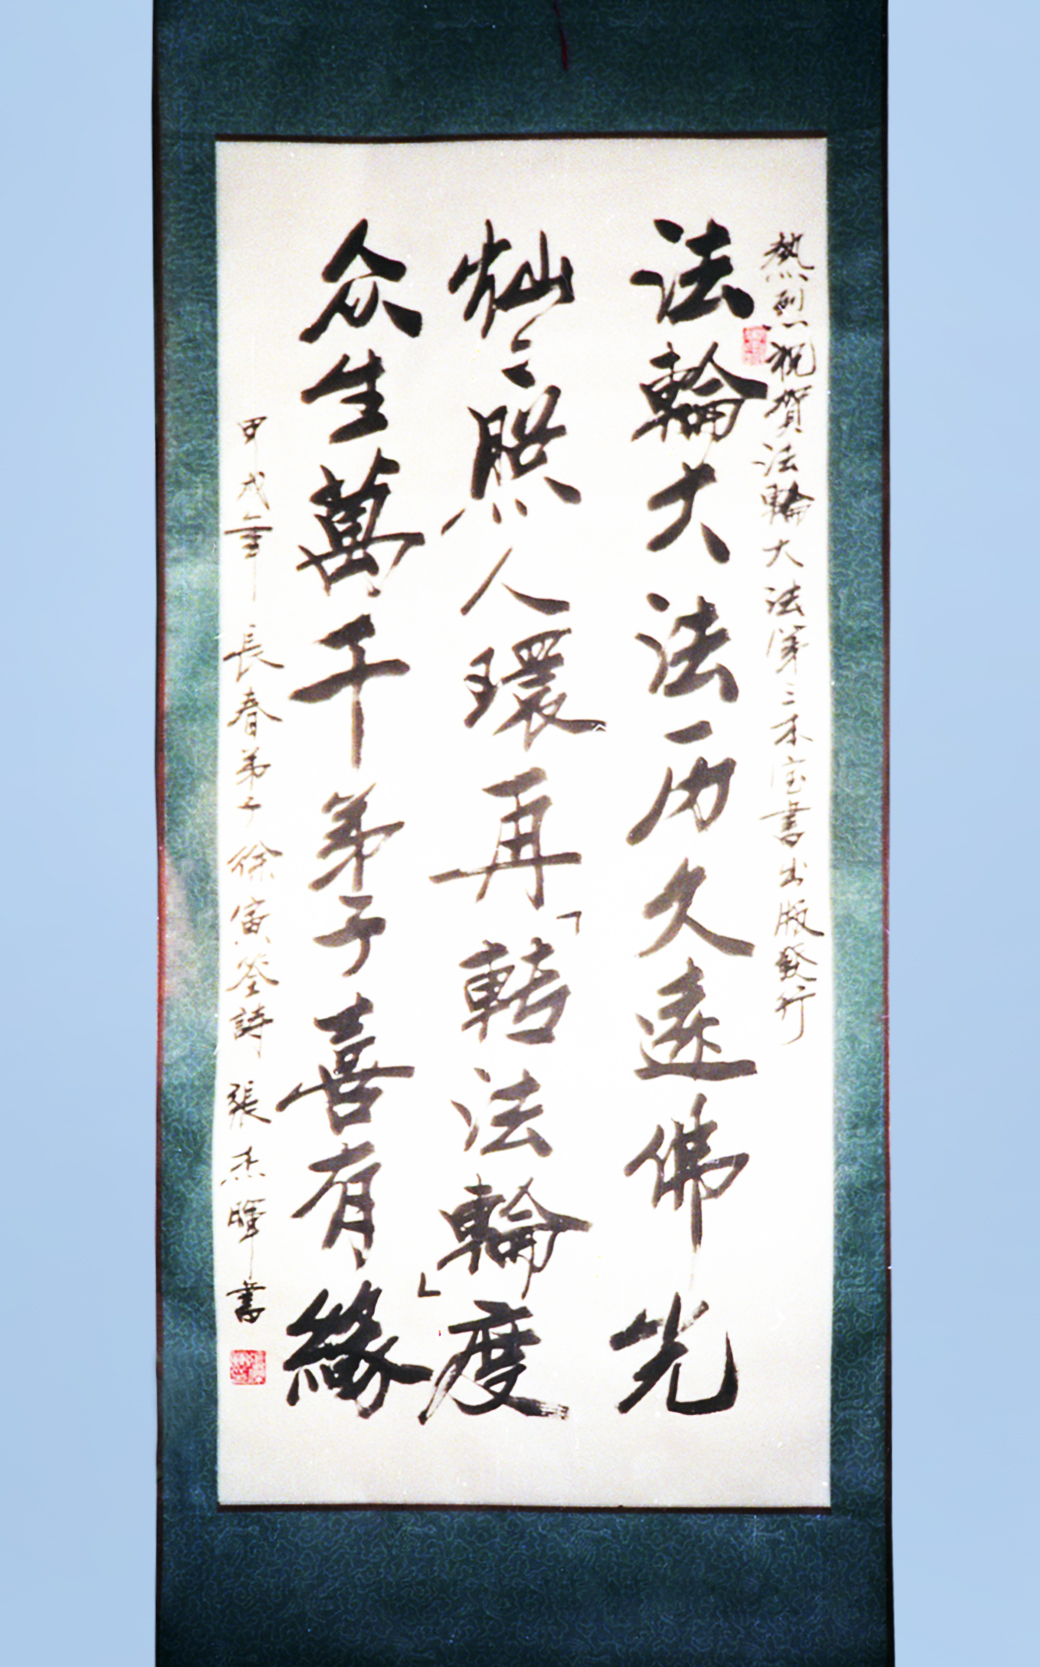 熱烈祝賀法輪大法第三本宝書出版發行
法輪大法历久遠佛光
灿々照人環再「轉法輪」度
众生萬千弟子喜有緣
甲戌年 長春弟子徐寅筌詩 張杰暉書